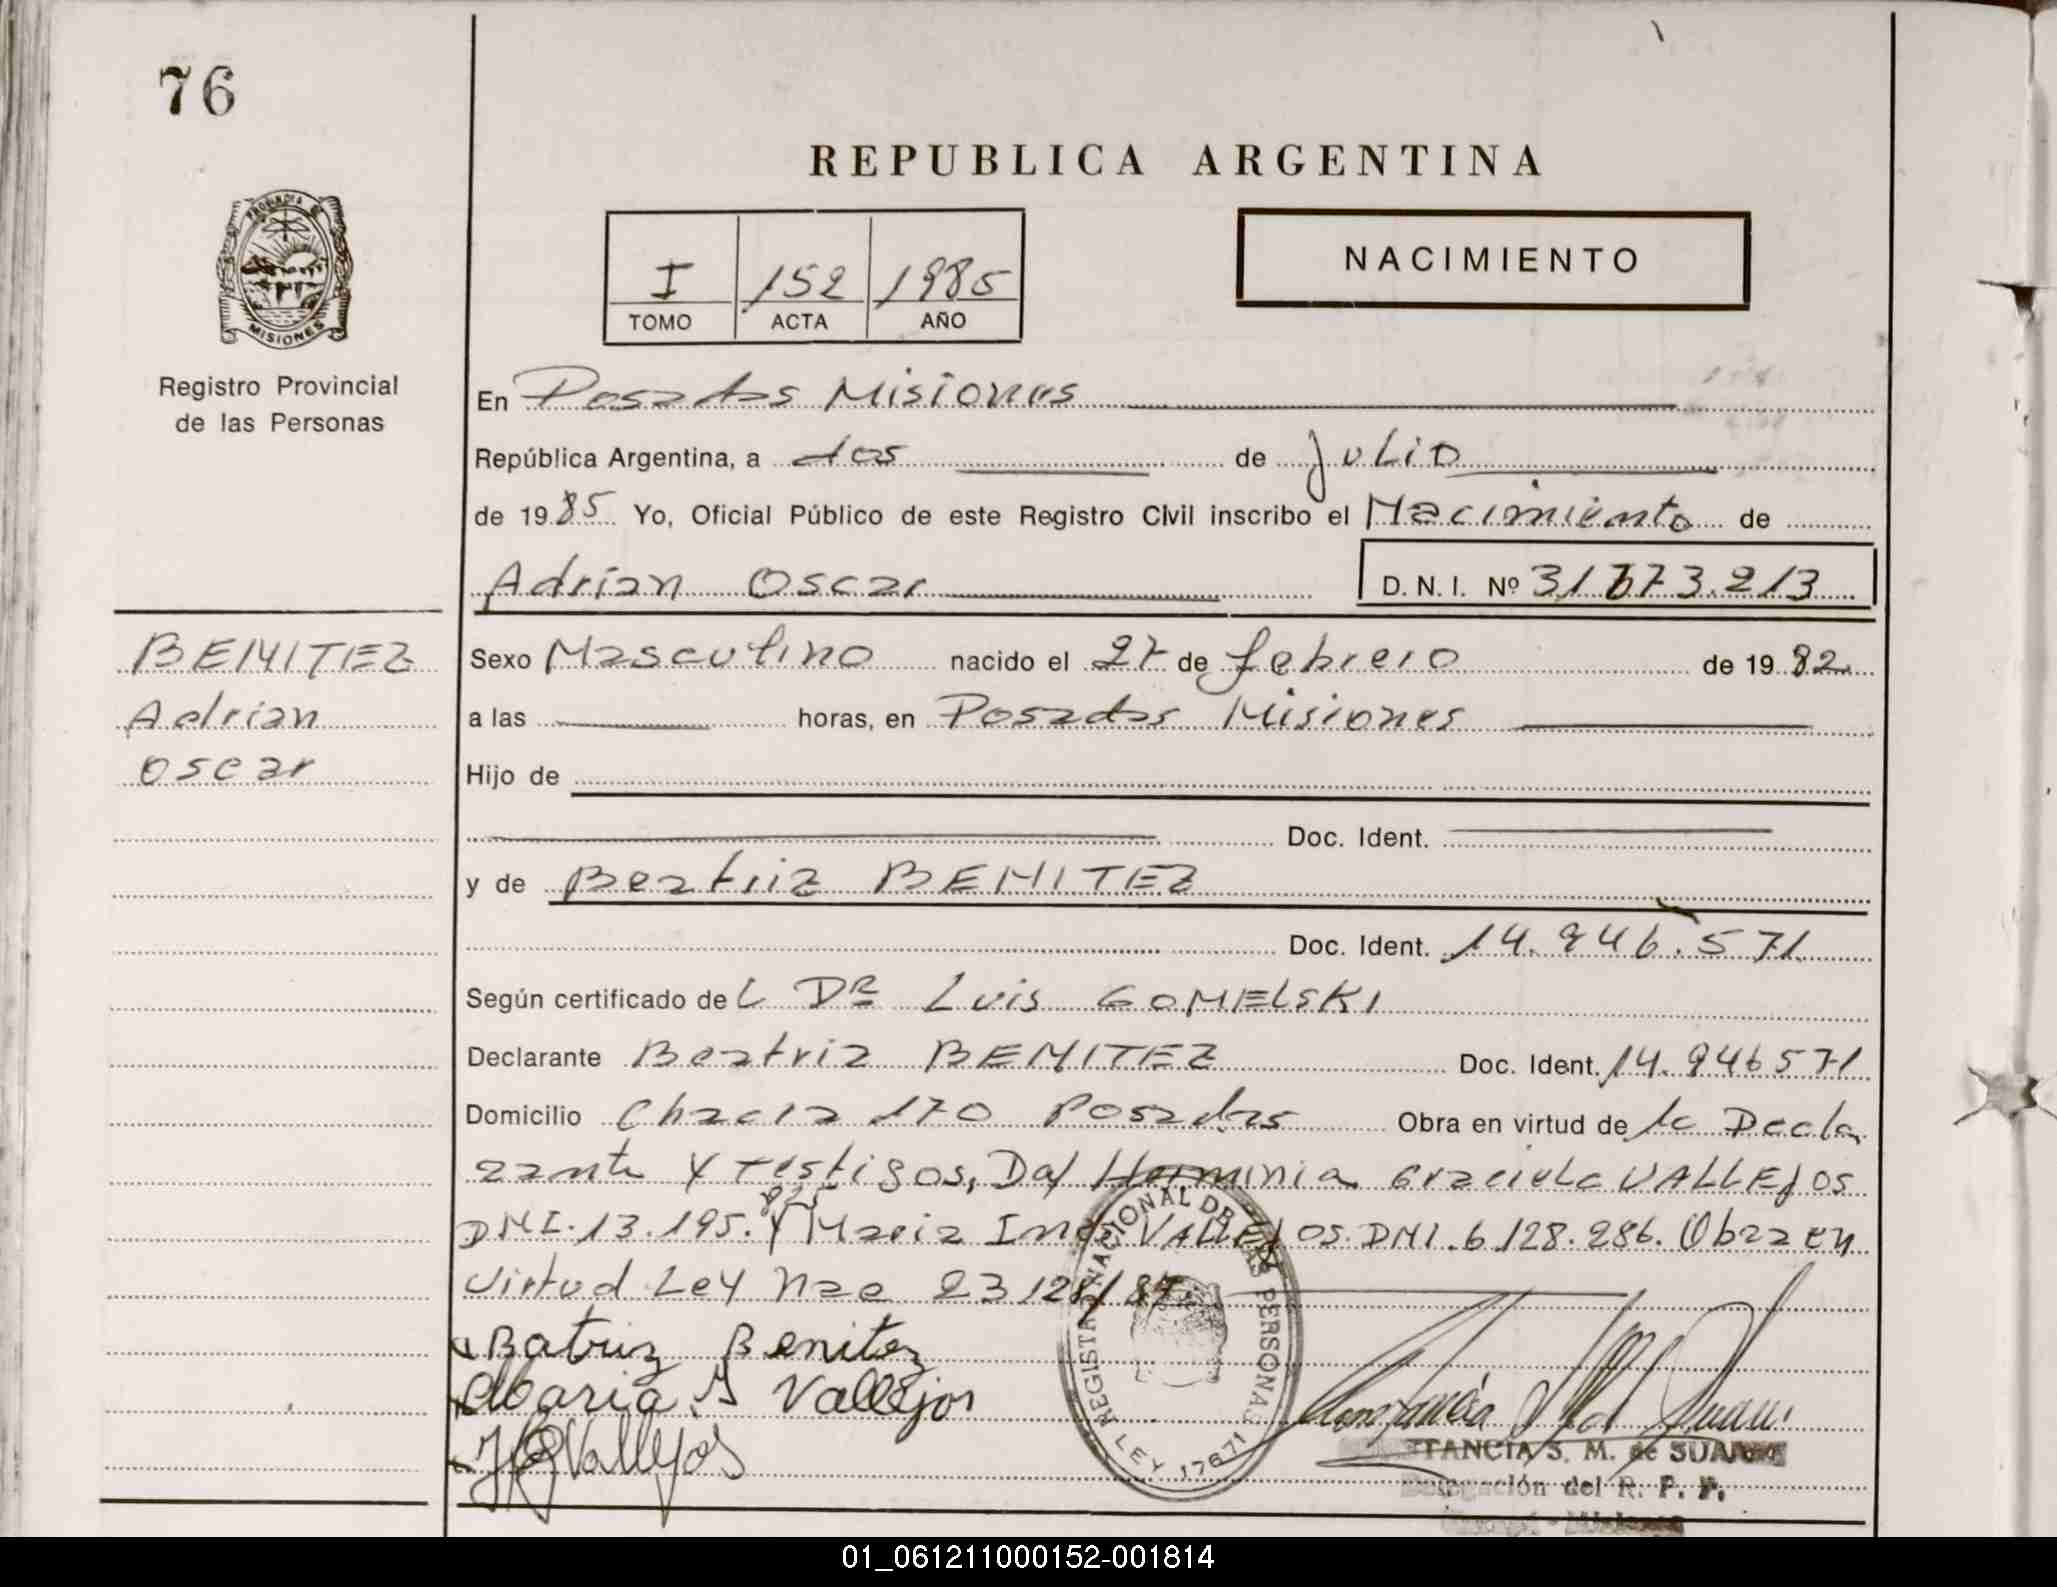 76
REPUBLICA ARGENTINA
PROVINCIA DE MISIONES
I 152 1985
TOMO ACTA AÑO
NACIMIENTO
Registro Provincial
de las Personas
En Posadas Misiones
República Argentina, a dos de Julio
de 1985 Yo, Oficial Público de este Registro Civil inscribo el Nacimiento de
Adrian Oscar D. N. I. Nº 31.673.213
BENITEZ
Adrian
Oscar
Sexo Masculino nacido el 27 de febrero de 1982
a las horas, en Posadas Misiones
Hijo de
Doc. Ident.
y de Beatriz BENITEZ
Doc. Ident. 14.946.571
Según certificado del DR Luis GOMELSKI
Declarante Beatriz BENITEZ Doc. Ident. 14.946571
Domicilio Chacra 170 Posadas Obra en virtud de la Decla
rante y testigos, Da/ Herminia Graciela VALLEJOS
DNI. 13.195.825 y Maria Ines VALLEJOS. DNI. 6.128.286. Obra en
virtud Ley Nac 23128/84
Batriz Benitez
Maria I Vallejos
HGVallejos
REGISTRO NACIONAL DE LAS PERSONAS
LEY 17671
TANCIA S. M. de SUAREZ
Delegación del R. P. P.
01_061211000152-001814